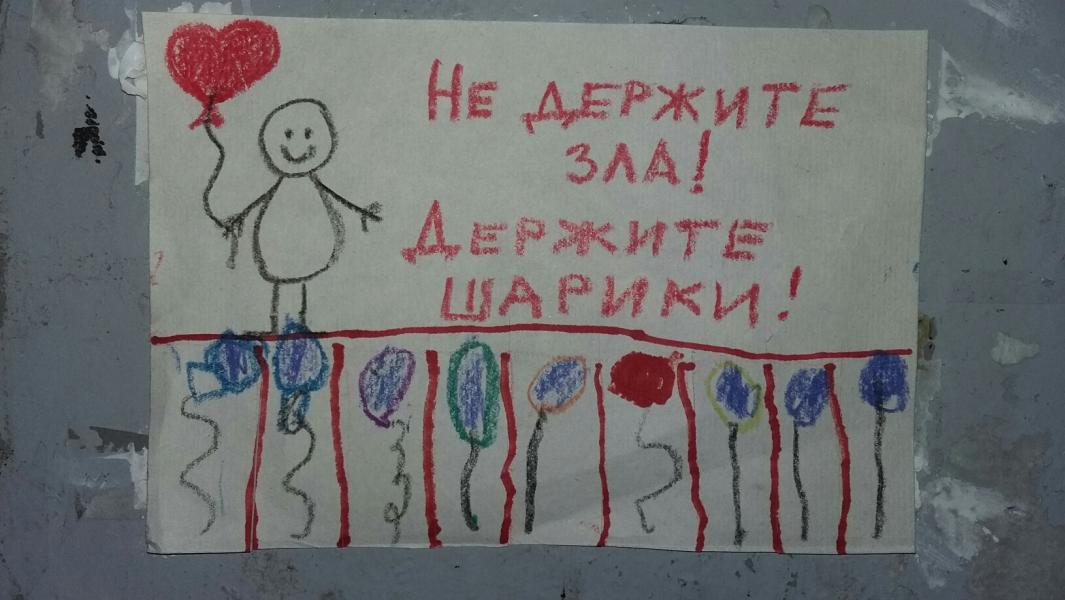 Не держите
зла!
Держите
шарики!